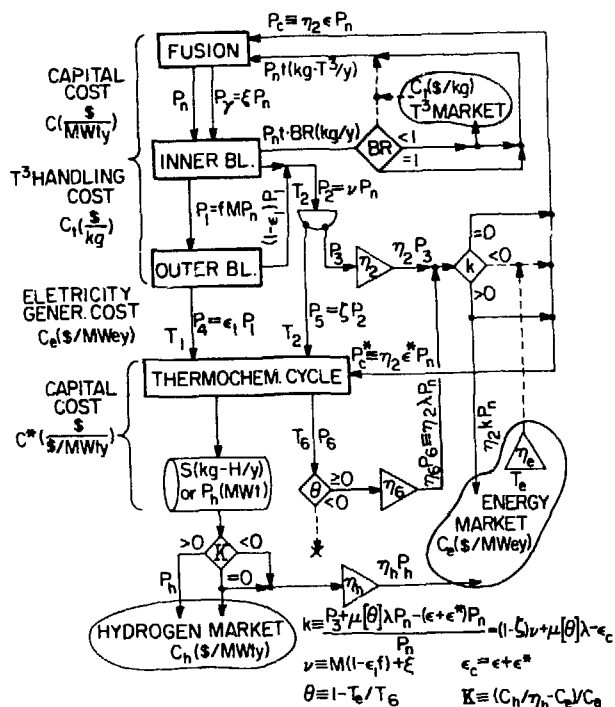 P_c ≡ η_2 ϵ P_n
FUSION
P_n t(kg-T^3/y)
CAPITAL
COST
C($/MWty)
P_n
P_γ=ξP_n
C_t($/kg)
T^3 MARKET
P_n t·BR(kg/y)
BR
<1
=1
INNER BL.
T^3 HANDLING
COST
C_t($/kg)
P_1=fMP_n
(1-ϵ_1)P_1
T_2
P_2=νP_n
P_3
η_2
η_2 P_3
k
=0
<0
>0
OUTER BL.
ELETRICITY
GENER. COST
C_e($/MWey)
T_1
P_4=ϵ_1 P_1
T_2
P_5=ζP_2
P_c^*≡η_2 ϵ^*P_n
THERMOCHEM. CYCLE
CAPITAL
COST
C^*($/$/MWty)
T_6
P_6
η_6 P_6≡η_2 λP_n
η_2 kP_n
S(kg-H/y)
or P_h(MWt)
θ
≥0
<0
η_6
η_e
T_e
ENERGY
MARKET
C_e($/MWey)
>0
K
<0
=0
P_h
η_h
η_h P_h
HYDROGEN MARKET
C_h($/MWty)
k≡(P_3+μ[θ]λP_n-(ϵ+ϵ^*)P_n)/P_n=(1-ζ)ν+μ[θ]λ-ϵ_c
ν≡M(1-ϵ_1 f)+ξ
ϵ_c=ϵ+ϵ^*
θ≡1-T_e/T_6
K≡(C_h/η_h-C_e)/C_e